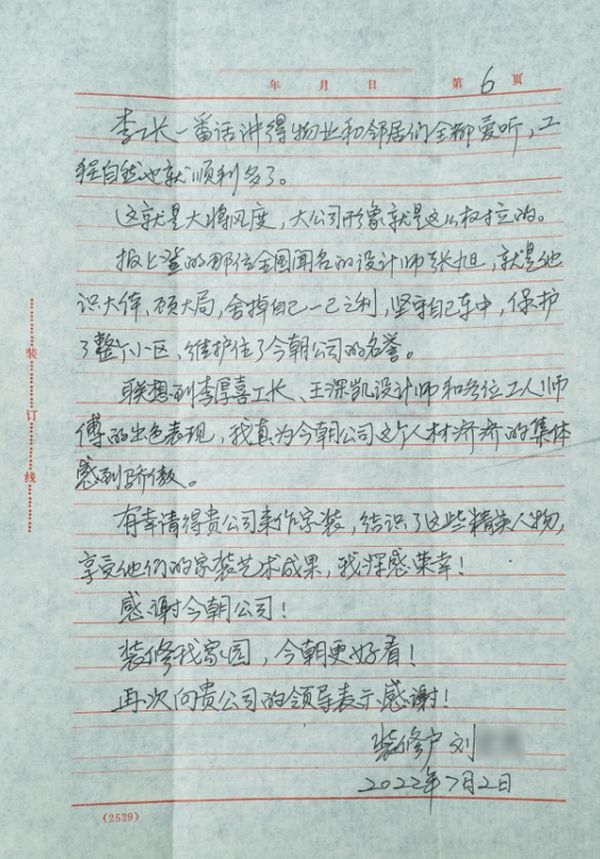 年 月 日 第 6 页
李工长一番话讲得物业和邻居们全都爱听，工
程自然也就顺利多了。
这就是大将风度，大公司形象就是这么权拉的。
报上登的那位全国闻名的设计师张旭，就是他
识大体、顾大局，舍掉自己一己之利，坚守自己车中，保护
了整个小区，维护住了今朝公司的名誉。
联想到李厚喜工长、王深凯设计师和各位工人师
傅的出色表现，我真为今朝公司这个人材济济的集体
感到骄傲。
有幸请得贵公司来作家装，结识了这些精英人物，
享受他们的家装艺术成果，我深感荣幸！
感谢今朝公司！
装修我家园，今朝更好看！
再次向贵公司的领导表示感谢！
装修户 刘
2022年7月2日
装
订
线
(2529)